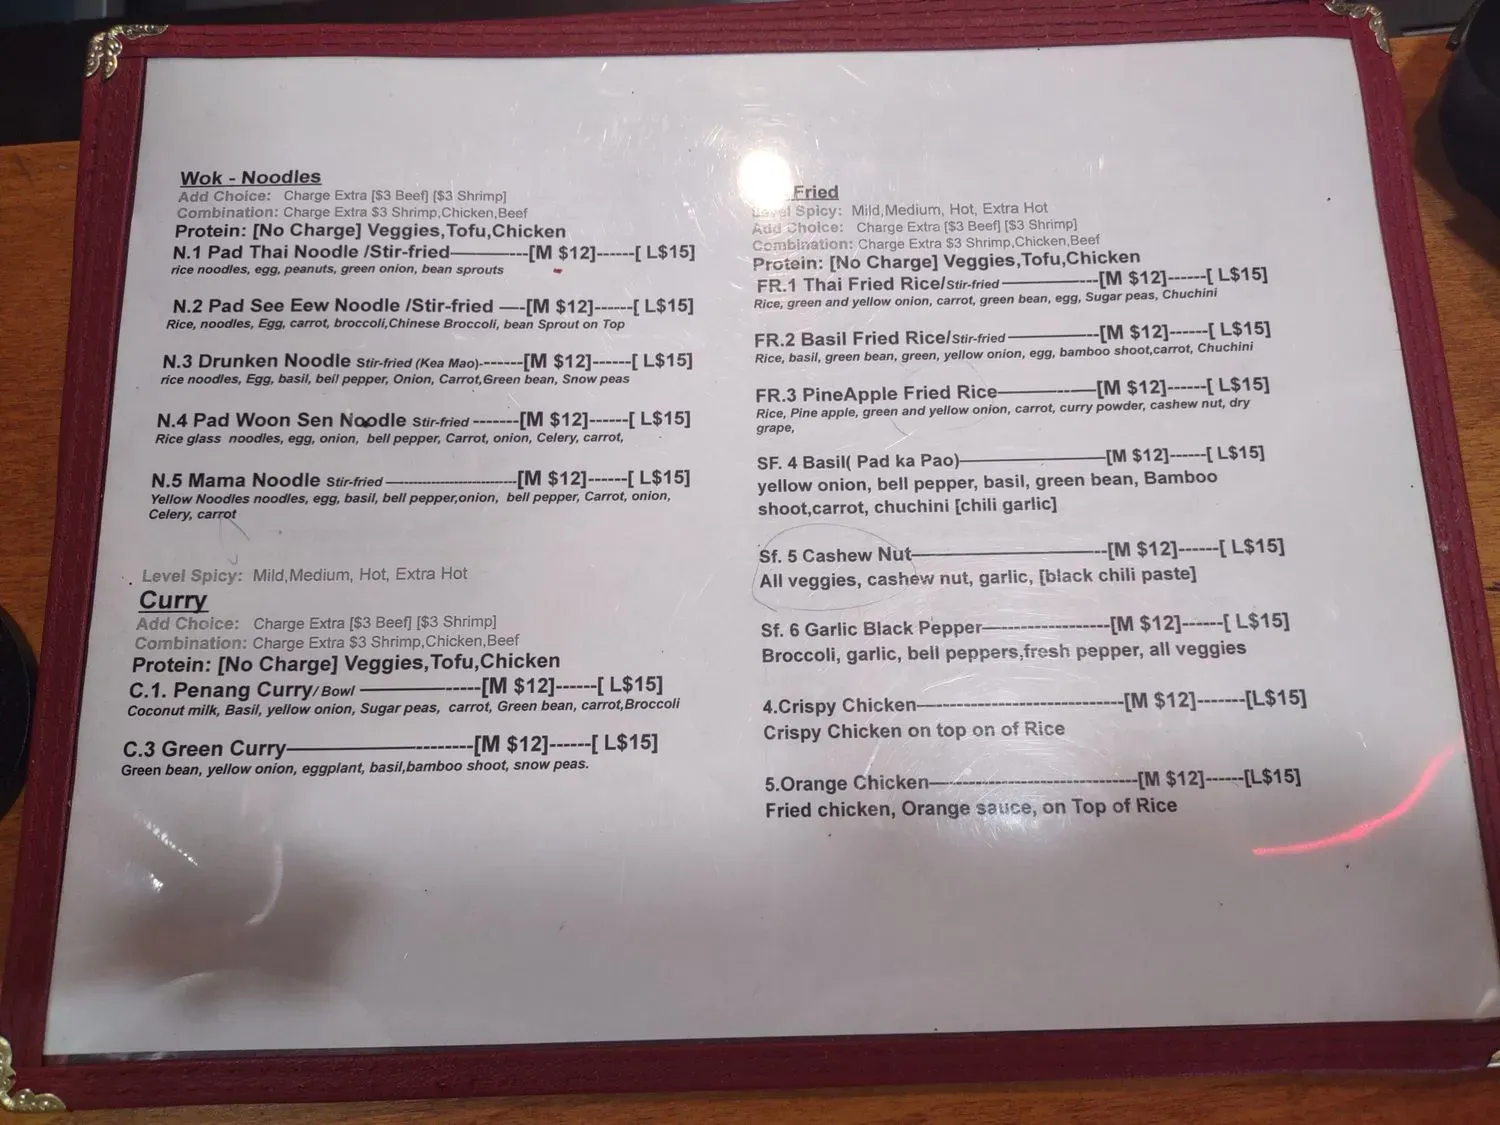 Wok - Noodles
Add Choice: Charge Extra [$3 Beef] [$3 Shrimp]
Combination: Charge Extra $3 Shrimp,Chicken,Beef
Protein: [No Charge] Veggies,Tofu,Chicken
N.1 Pad Thai Noodle /Stir-fried----------[M $12]------[ L$15]
rice noodles, egg, peanuts, green onion, bean sprouts
N.2 Pad See Eew Noodle /Stir-fried ----[M $12]------[ L$15]
Rice, noodles, Egg, carrot, broccoli,Chinese Broccoli, bean Sprout on Top
N.3 Drunken Noodle Stir-fried (Kea Mao)-------[M $12]------[ L$15]
rice noodles, Egg, basil, bell pepper, Onion, Carrot,Green bean, Snow peas
N.4 Pad Woon Sen Noodle Stir-fried -------[M $12]------[ L$15]
Rice glass noodles, egg, onion, bell pepper, Carrot, onion, Celery, carrot,
N.5 Mama Noodle Stir-fried --------------------[M $12]------[ L$15]
Yellow Noodles noodles, egg, basil, bell pepper,onion, bell pepper, Carrot, onion,
Celery, carrot
Level Spicy: Mild,Medium, Hot, Extra Hot
Curry
Add Choice: Charge Extra [$3 Beef] [$3 Shrimp]
Combination: Charge Extra $3 Shrimp,Chicken,Beef
Protein: [No Charge] Veggies,Tofu,Chicken
C.1. Penang Curry/ Bowl --------------[M $12]------[ L$15]
Coconut milk, Basil, yellow onion, Sugar peas, carrot, Green bean, carrot,Broccoli
C.3 Green Curry--------------------[M $12]------[ L$15]
Green bean, yellow onion, eggplant, basil,bamboo shoot, snow peas.
Fried
Level Spicy: Mild,Medium, Hot, Extra Hot
Add Choice: Charge Extra [$3 Beef] [$3 Shrimp]
Combination: Charge Extra $3 Shrimp,Chicken,Beef
Protein: [No Charge] Veggies,Tofu,Chicken
FR.1 Thai Fried Rice/Stir-fried --------------[M $12]------[ L$15]
Rice, green and yellow onion, carrot, green bean, egg, Sugar peas, Chuchini
FR.2 Basil Fried Rice/Stir-fried --------------[M $12]------[ L$15]
Rice, basil, green bean, green, yellow onion, egg, bamboo shoot,carrot, Chuchini
FR.3 PineApple Fried Rice--------------[M $12]------[ L$15]
Rice, Pine apple, green and yellow onion, carrot, curry powder, cashew nut, dry
grape,
SF. 4 Basil( Pad ka Pao)--------------------[M $12]------[ L$15]
yellow onion, bell pepper, basil, green bean, Bamboo
shoot,carrot, chuchini [chili garlic]
Sf. 5 Cashew Nut--------------------[M $12]------[ L$15]
All veggies, cashew nut, garlic, [black chili paste]
Sf. 6 Garlic Black Pepper--------------------[M $12]------[ L$15]
Broccoli, garlic, bell peppers,fresh pepper, all veggies
4.Crispy Chicken------------------------------[M $12]-------[L$15]
Crispy Chicken on top on of Rice
5.Orange Chicken------------------------------[M $12]------[L$15]
Fried chicken, Orange sauce, on Top of Rice